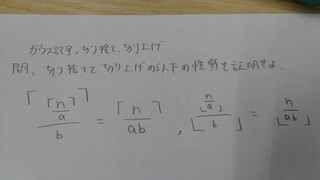 ガウス記号,切り捨て,切り上げ
問,切り捨てと切り上げの以下の性質を証明せよ.
⌈⌈n/a⌉/b⌉ = ⌈n/ab⌉ , ⌊⌊n/a⌋/b⌋ = ⌊n/ab⌋